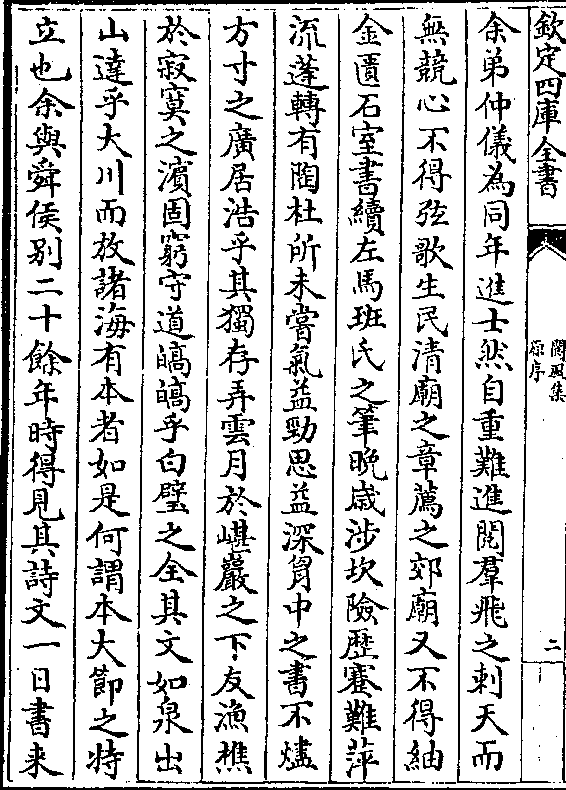 欽定四庫全書
閬風集
原序
二
余弟仲儀為同年進士然自重難進閱羣飛之刺天而
無競心不得弦歌生民清廟之章薦之郊廟又不得紬
金匱石室書續左馬班氏之筆晚歳涉坎險歴蹇難萍
流蓬轉有陶杜所未嘗氣益勁思益深胷中之書不燼
方寸之廣居浩乎其獨存弄雲月於嵁巖之下友漁樵
於寂寞之濵固窮守道皜皜乎白璧之全其文如泉出
山達乎大川而放諸海有本者如是何謂本大節之特
立也余與舜侯别二十餘年時得見其詩文一日書来